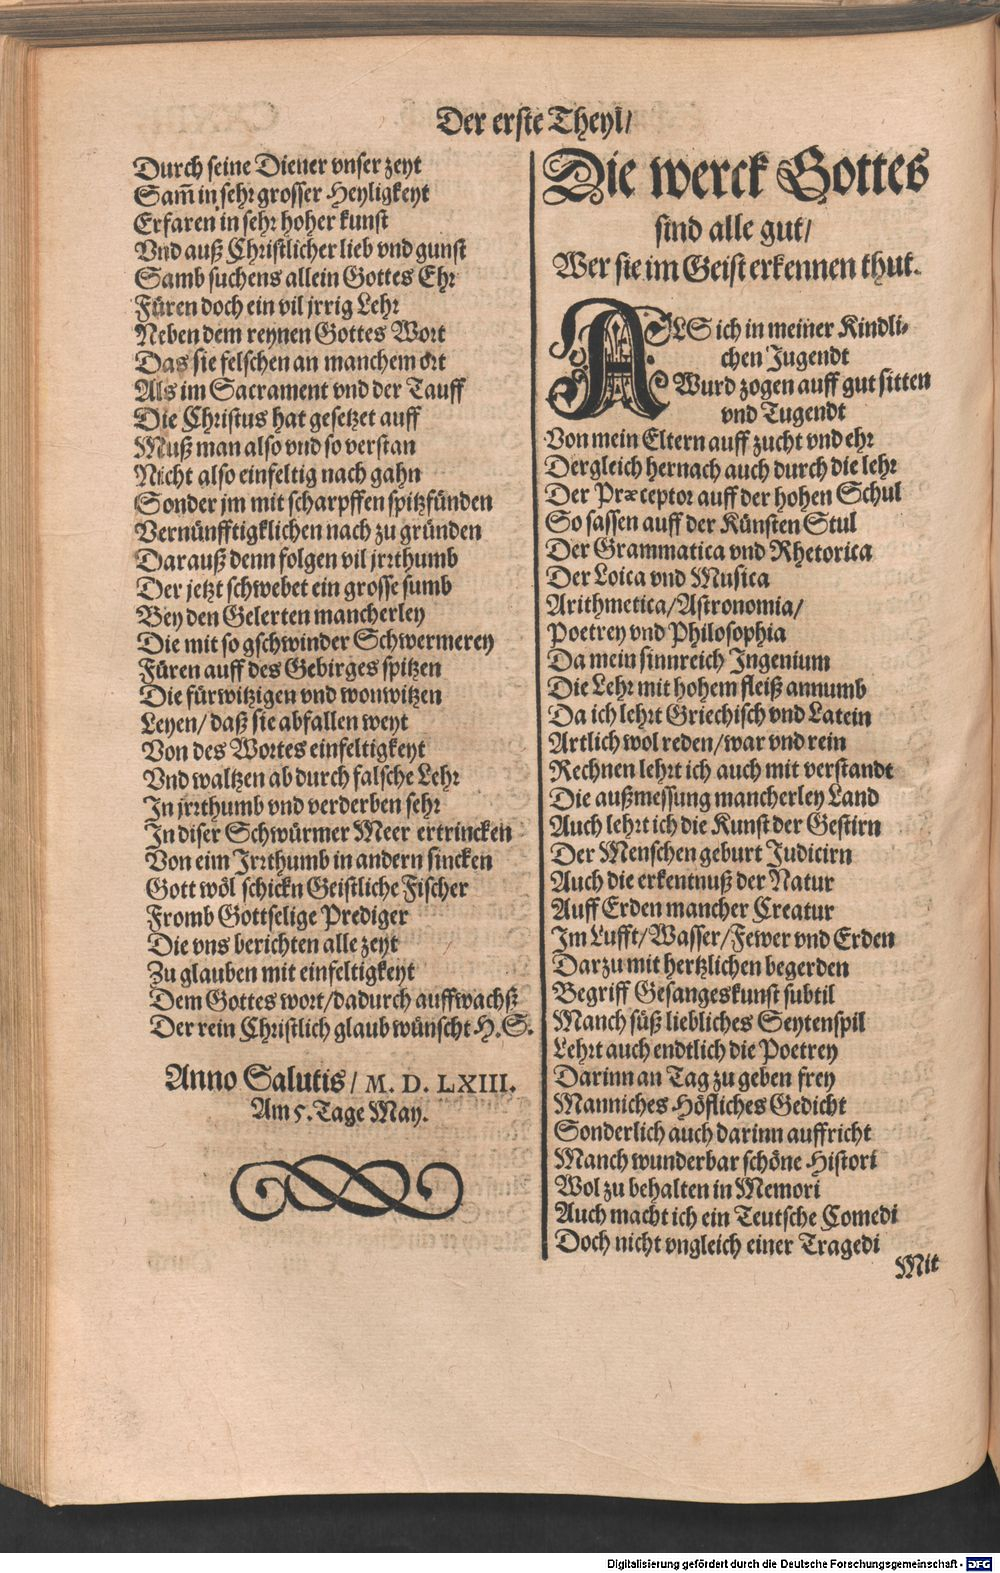 Der erste Theyl/
Durch seine Diener vnser zeyt
Sam̃ in sehr grosser Heyligkeyt
Erfaren in sehr hoher kunst
Vnd auß Christlicher lieb vnd gunst
Samb suchens allein Gottes Ehr
Füren doch ein vil jrrig Lehr
Neben dem reynen Gottes Wort
Das sie felschen an manchem ort
Als im Sacrament vnd der Tauff
Die Christus hat gesetzet auff
Muß man also vnd so verstan
Nicht also einfeltig nach gahn
Sonder jm mit scharpffen spitzfünden
Vernünfftigklichen nach zu gründen
Darauß denn folgen vil jrrthumb
Der jetzt schwebet ein grosse sumb
Bey den Gelerten mancherley
Die mit so gschwinder Schwermerey
Füren auff des Gebirges spitzen
Die fürwitzigen vnd wonwitzen
Leyen/ daß sie abfallen weyt
Von des Wortes einfeltigkeyt
Vnd waltzen ab durch falsche Lehr
In jrrthumb vnd verderben sehr
In diser Schwürmer Meer ertrincken
Von eim Irrthumb in andern sincken
Gott wöl schickn Geistliche Fischer
Fromb Gottselige Prediger
Die vns berichten alle zeyt
Zu glauben mit einfeltigkeyt
Dem Gottes wort/dadurch auffwachß
Der rein Christlich glaub wünscht H.S.
Anno Salutis/ M. D. LXIII.
Am 5. Tage May.
Die werck Gottes
sind alle gut/
Wer sie im Geist erkennen thut.
ALS ich in meiner Kindli-
chen Jugendt
Wurd zogen auff gut sitten
vnd Tugendt
Von mein Eltern auff zucht vnd ehr
Dergleich hernach auch durch die lehr
Der Præceptor auff der hohen Schul
So sassen auff der Künsten Stul
Der Grammatica vnd Rhetorica
Der Loica vnd Musica
Arithmetica/Astronomia/
Poetrey vnd Philosophia
Da mein sinnreich Ingenium
Die Lehr mit hohem fleiß annumb
Da ich lehrt Griechisch vnd Latein
Artlich wol reden/war vnd rein
Rechnen lehrt ich auch mit verstandt
Die außmessung mancherley Land
Auch lehrt ich die Kunst der Gestirn
Der Menschen geburt Judicirn
Auch die erkentnuß der Natur
Auff Erden mancher Creatur
Im Lufft/Wasser/Fewer vnd Erden
Darzu mit hertzlichen begerden
Begriff Gesangeskunst subtil
Manch süß liebliches Seytenspil
Lehrt auch endtlich die Poetrey
Darinn an Tag zu geben frey
Manniches Höfliches Gedicht
Sonderlich auch darinn auffricht
Manch wunderbar schöne Histori
Wol zu behalten in Memori
Auch macht ich ein Teutsche Comedi
Doch nicht vngleich einer Tragedi
Mit
Digitalisierung gefördert durch die Deutsche Forschungsgemeinschaft - DFG